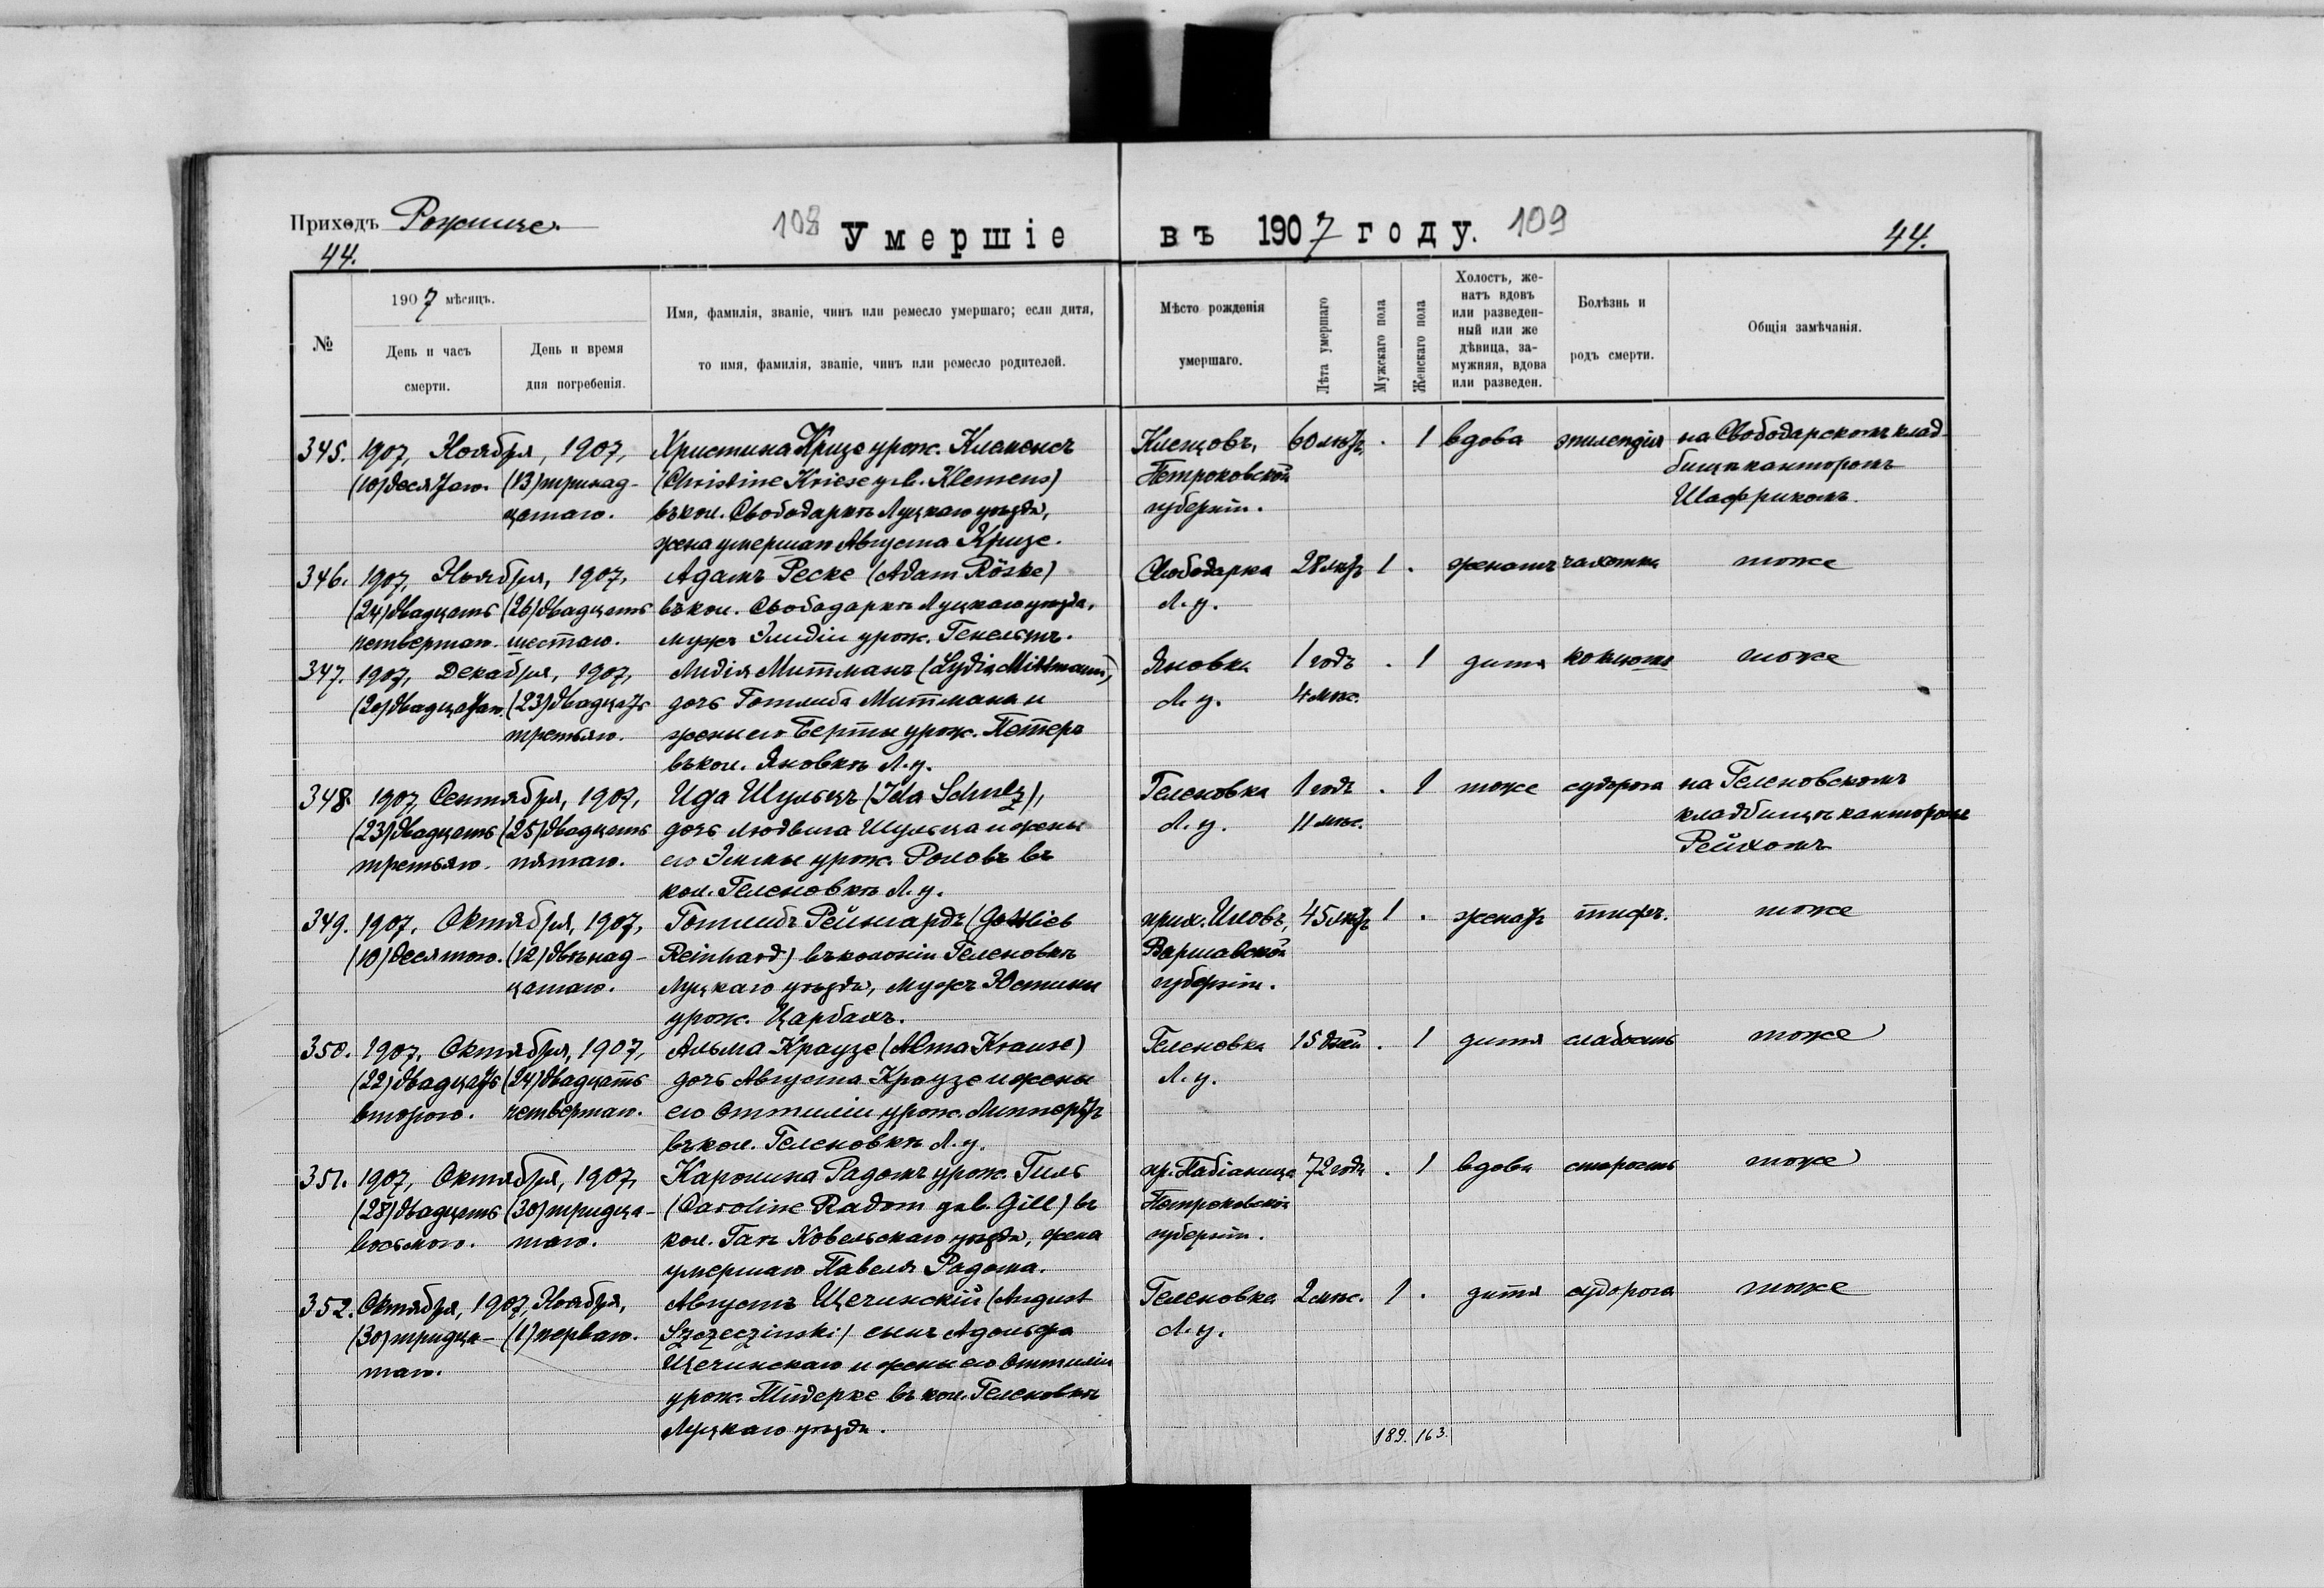 Приходъ Рожище.
108 Умершіе
въ 1907 году. 109
44.
44.
№
1907 мѣсяцъ.
День и часъ смерти.
День и время дня погребенія.
Имя, фамилія, званіе, чинъ или ремесло умершаго; если дитя,
то имя, фамилія, званіе, чинъ или ремесло родителей.
Мѣсто рожденія
умершаго.
Лѣта умершаго
Мужскаго пола
Женскаго пола
Холостъ, же-
натъ вдовъ
или разведен-
ный или же
дѣвица, за-
мужняя, вдова
или разведен.
Болѣзнь и
родъ смерти.
Общія замѣчанія.
345. 1907, Ноября, 1907, Христина Кризе урож. Клеменсъ 60 лѣтъ . 1 вдова эпилепсія на Свободарскомъ клад-
(10) десятаго. (13) тринад- (Christine Kriese geb. Klemens) Петроковской бищѣ канторомъ
цатаго. въ кол. Свободаркѣ Луцкаго уѣзда, губерніи. Шаффрикомъ.
жена умершаго Августа Кризе.
346. 1907, Ноября, 1907, Адамъ Реске (Adam Röske) Свободарка 28 лѣтъ 1 . женатъ чахотка тоже
(24) двадцать (26) двадцать въ кол. Свободаркѣ Луцкаго уѣзда, Л. у.
четвертаго. шестаго. мужъ урож.
347. 1907, Декабря, 1907, Лидія Миттманъ (Lydia Mittmann), Яновка 1 годъ . 1 дитя коклюшъ тоже
(20) двадцатаго. (23) двадцать дочь Готлиба Миттмана и Л. у. 4 мѣс.
третьяго. жены его Берты урож. Петеръ
въ кол. Яновкѣ Л. у.
348. 1907, Сентября, 1907, Ида Шульцъ (Ida Schulz), Геленовка 1 годъ . 1 тоже судорога на Геленовскомъ
(23) двадцать (25) двадцать дочь Людвига Шульца и жены Л. у. 11 мѣс. кладбищѣ канторомъ
третьяго. пятаго. его Эммы урож. въ Рейхомъ
кол. Геленовкѣ Л. у.
349. 1907, Октября, 1907, Готлибъ Рейнгардъ (Gottlieb прих. Иловъ, 45 лѣтъ 1 . женатъ тифъ. тоже
(10) десятого. (12) двѣнад- Reinhard) въ колоніи Геленовкѣ Варшавской
цатаго. Луцкаго уѣзда, мужъ Юстины губерніи.
урож. Царбахъ.
350. 1907, Октября, 1907, Альма Краузе (Alma Krause) Геленовка 15 дней . 1 дитя слабость тоже
(22) двадцать (24) двадцать дочь Августа Краузе и жены Л. у.
второго. четвертаго. его Оттиліи урож. Липпертъ
въ кол. Геленовкѣ Л. у.
351. 1907, Октября, 1907, Каролина Радомъ урож. Гиль пр. Пабіаница 72 года . 1 вдова старость тоже
(28) двадцать (30) тридца- (Caroline Radom geb. Gill) въ Петроковской
восьмого. таго. кол. Ковельскаго уѣзда, жена губерніи.
умершаго Павела Радома.
352. Октября, 1907, Ноября, Августъ Щечинскій (August Геленовка 2 мѣс. 1 . дитя судорога тоже
(30) тридца- (1) перваго. Szczeczinski) сынъ Адольфа Л. у.
таго. Щечинскаго и жены его Оттиліи
урож. Тидерке въ кол. Геленовкѣ
Луцкаго уѣзда.
189. 163.